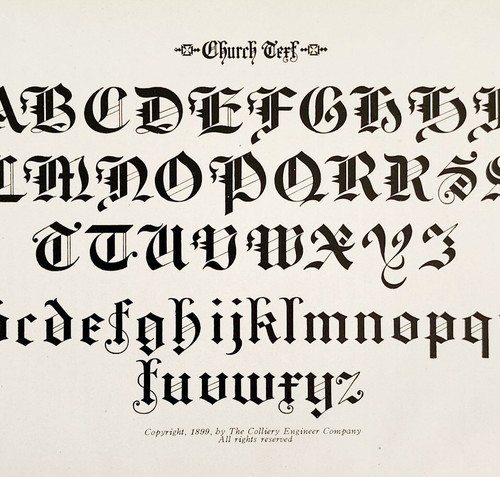 Church Text
ABCDEFGHH
LMNOPQRRS
TTUVWXYZ
cdefghijklmnopq
tuvwxyz
Copyright, 1899, by The Colliery Engineer Company
All rights reserved